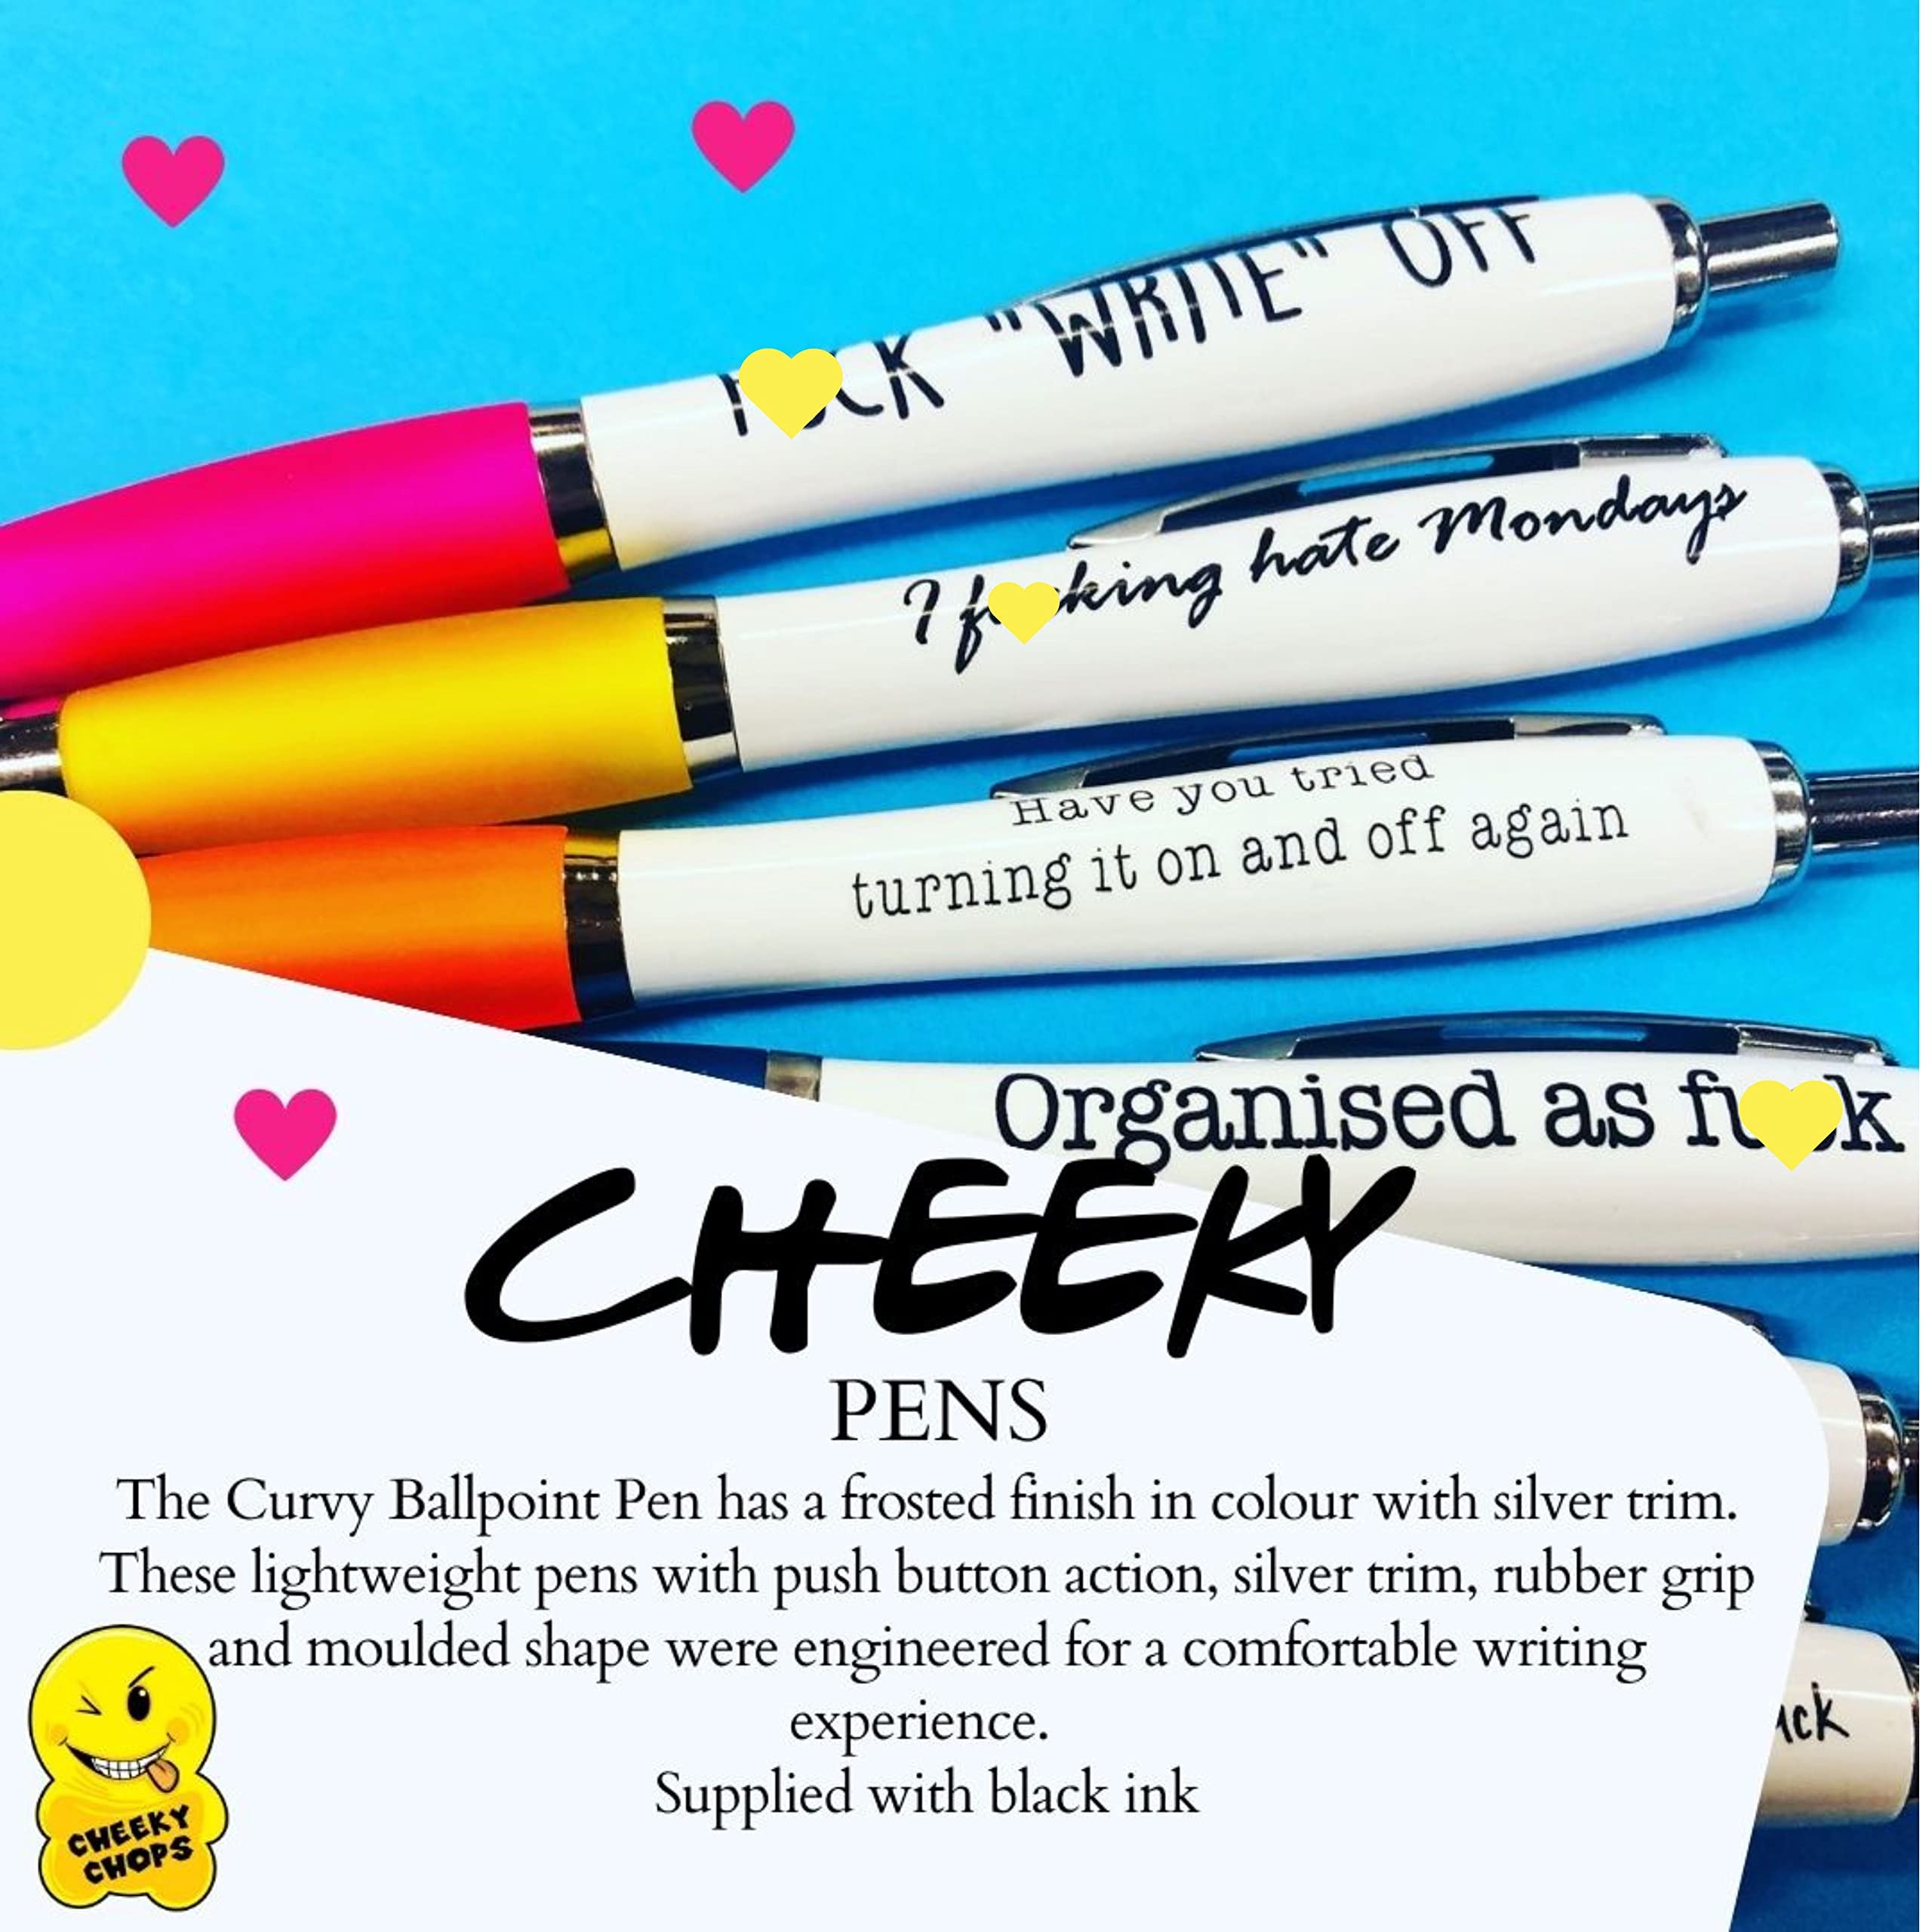 "WRITE" OFF
I hate Mondays
Have you tried
turning it on and off again
Organised as
CHEEKY
PENS
The Curvy Ballpoint Pen has a frosted finish in colour with silver trim.
These lightweight pens with push button action, silver trim, rubber grip
and moulded shape were engineered for a comfortable writing
experience.
Supplied with black ink
CHEEKY
CHOPS